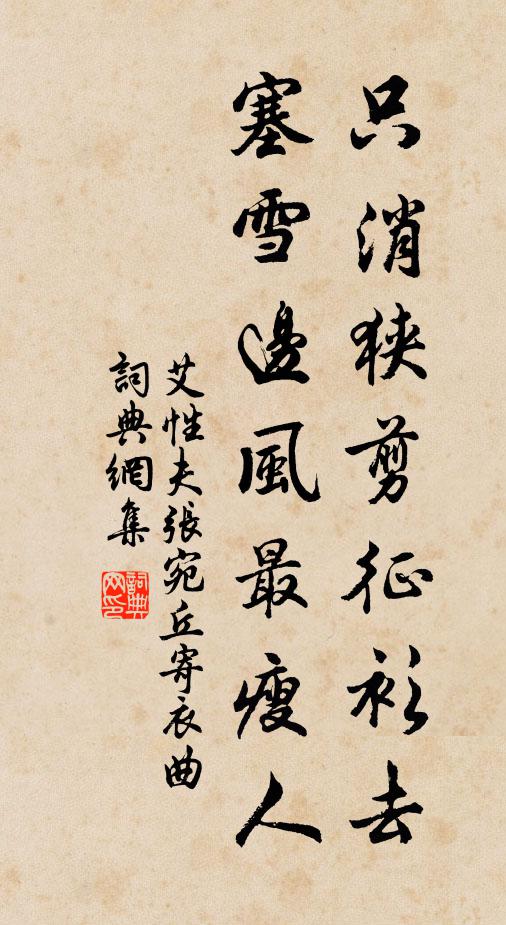 只消狹剪征衫去
塞雪邊風最瘦人
艾性夫張宛丘寄衣曲
詞典網集
詞典網印